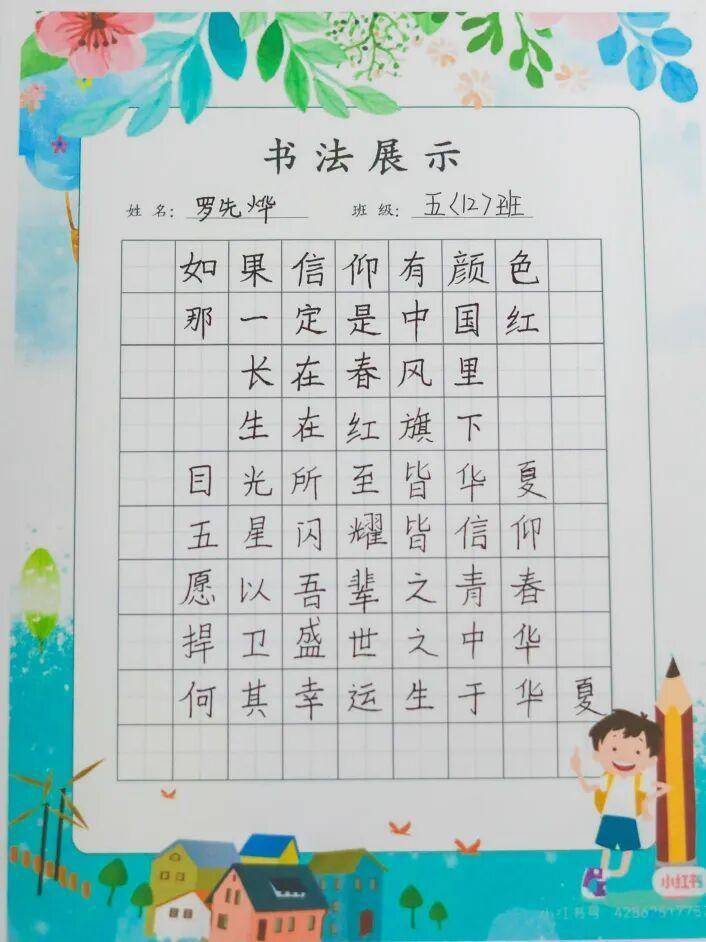 书法展示
姓名: 罗先烨 班级: 五<12>班
如果信仰有颜色
那一定是中国红
长在春风里
生在红旗下
目光所至皆华夏
五星闪耀皆信仰
愿以吾辈之青春
捍卫盛世之中华
何其幸运生于华夏
小红书
小红书号